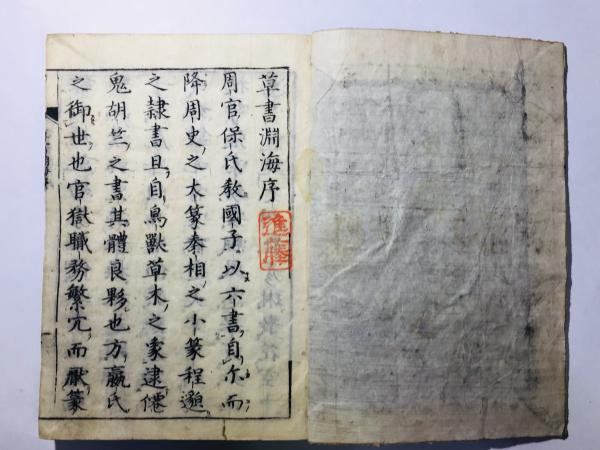 草書淵海序
進藤
周官保氏敎國子以六書自尒而
降周史之大篆秦相之小篆程邈
之隷書且自鳥獸草木之象逮僊
鬼胡竺之書其體良夥也方嬴氏
之御世也官獄職務繁冗而厭篆